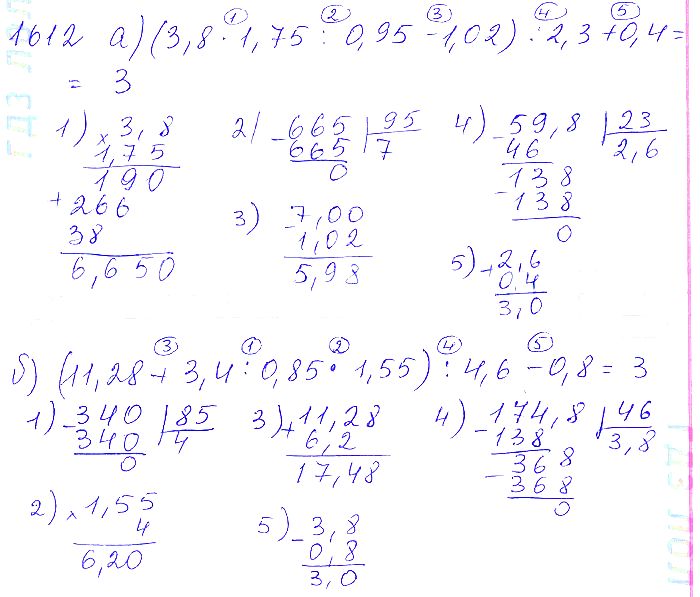 ① ② ③ ④ ⑤
1612 а) (3,8 · 1,75 : 0,95 - 1,02) : 2,3 + 0,4 =
= 3
1) × 3,8
1,75
190
+ 266
38
6,650
2) - 665 | 95
665 7
0
3) - 7,00
1,02
5,98
4) - 59,8 | 23
46 2,6
- 138
138
0
5) + 2,6
0,4
3,0
③ ① ② ④ ⑤
б) (11,28 + 3,4 : 0,85 · 1,55) : 4,6 - 0,8 = 3
1) - 340 | 85
340 4
0
2) × 1,55
4
6,20
3) + 11,28
6,2
17,48
4) - 174,8 | 46
138 3,8
- 368
368
0
5) - 3,8
0,8
3,0